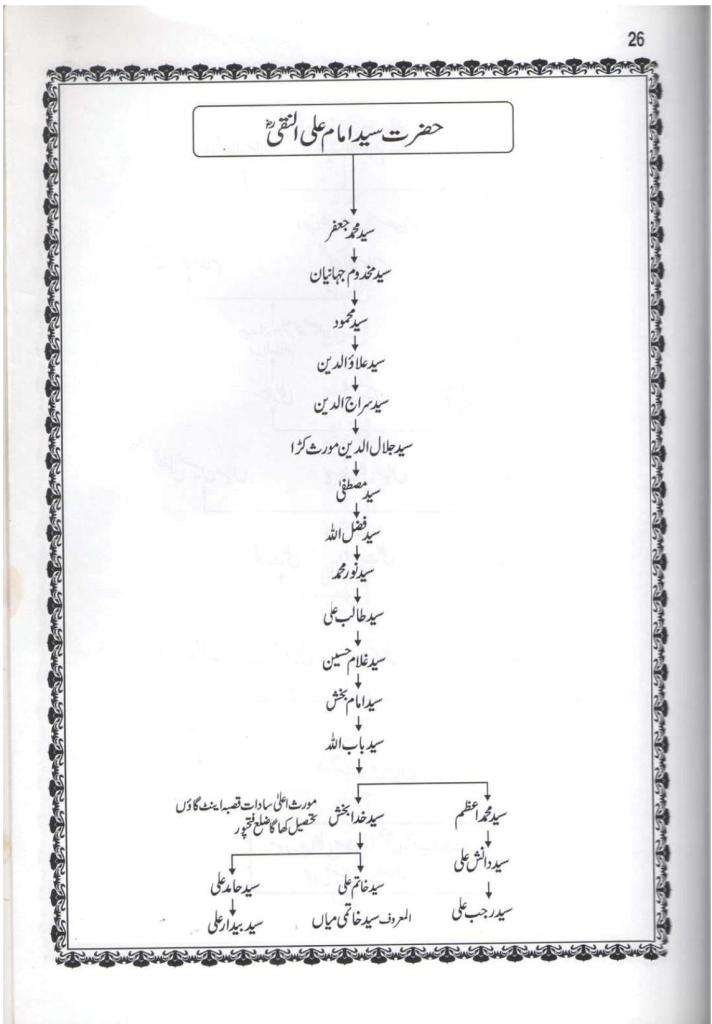 26
حضرت سید امام علی النقیؓ
سید محمد جعفر
سید مخدوم جہانیان
سید محمود
سید علاؤالدین
سید سراج الدین
سید جلال الدین مورث کڑا
سید مصطفیٰ
سید فضل اللہ
سید نور محمد
سید طالب علی
سید غلام حسین
سید امام بخش
سید باب اللہ
سید محمد اعظم
سید خدا بخش
مورث اعلیٰ سادات قصبہ اینٹ گاؤں
تحصیل کھاگا ضلع فتحپور
سید دانش علی
سید خاتم علی
سید حامد علی
سید رجب علی
المعروف سید خاتمی میاں
سید بیدار علی